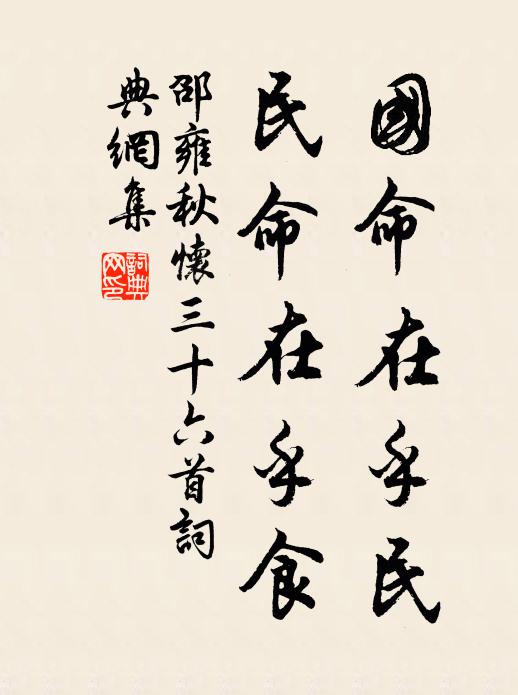 國命在乎民
民命在乎食
邵雍秋懷三十六首詞
典網集
詞典
网印